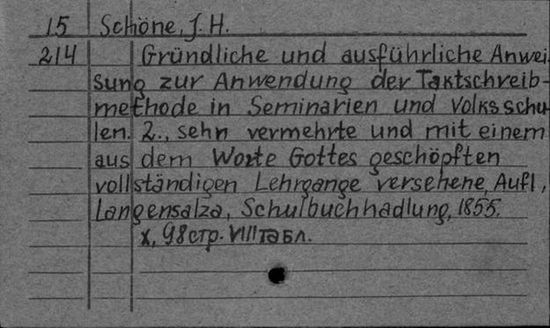 15 Schöne, J. H.
214 Gründliche und ausführliche Anwei
sung zur Anwendung der Taktschreib-
methode in Seminarien und Volksschu
len. 2., sehn vermehrte und mit einem
aus dem Worte Gottes geschöpften
vollständigen Lehrgange versehene, Aufl,
Langensalza, Schulbuchhadlung, 1855.
X, 98 стр. VIII табл.